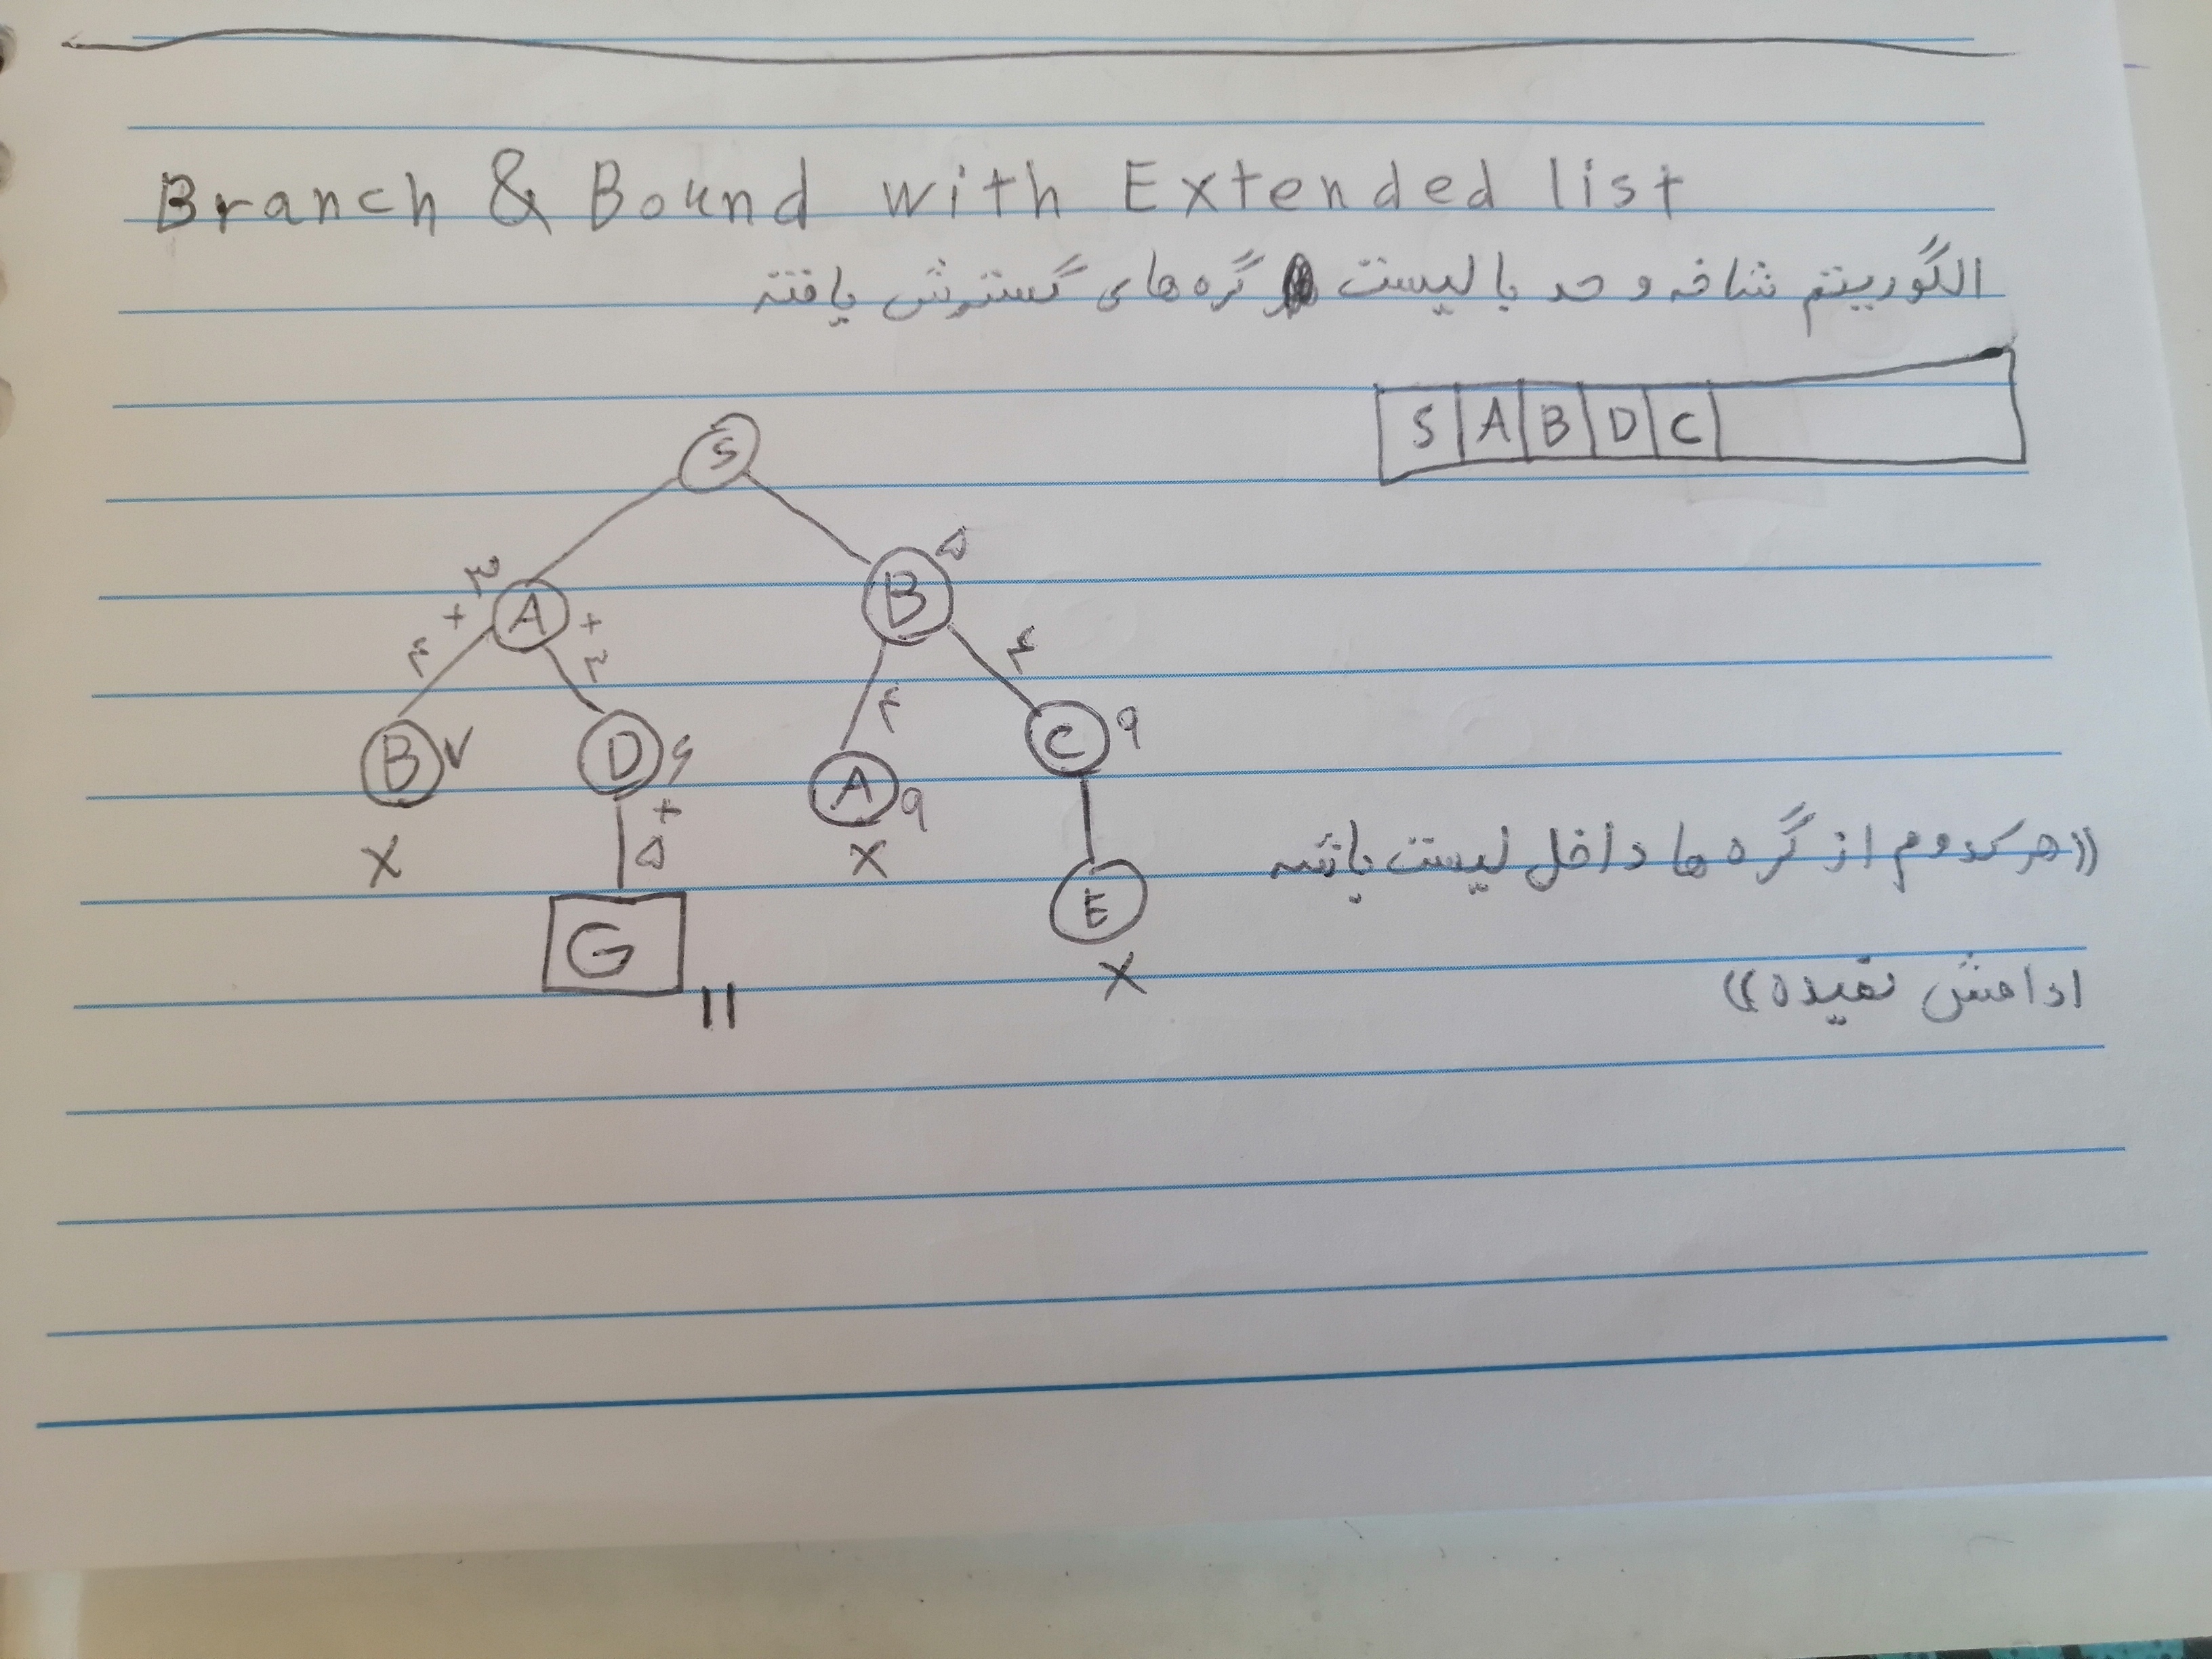 Branch & Bound with Extended list
الگوریتم شاخه و حد با لیست گره های گسترش یافته
S A B D C
S
۳ A + +
B ۵
۴ ۳
۴ ۴
B ۷ D ۶ +
A ۹ C ۹
X ۵ X
G ۱۱
E
X
«هر کدوم از گره ها داخل لیست باشه
ادامش نمیده»